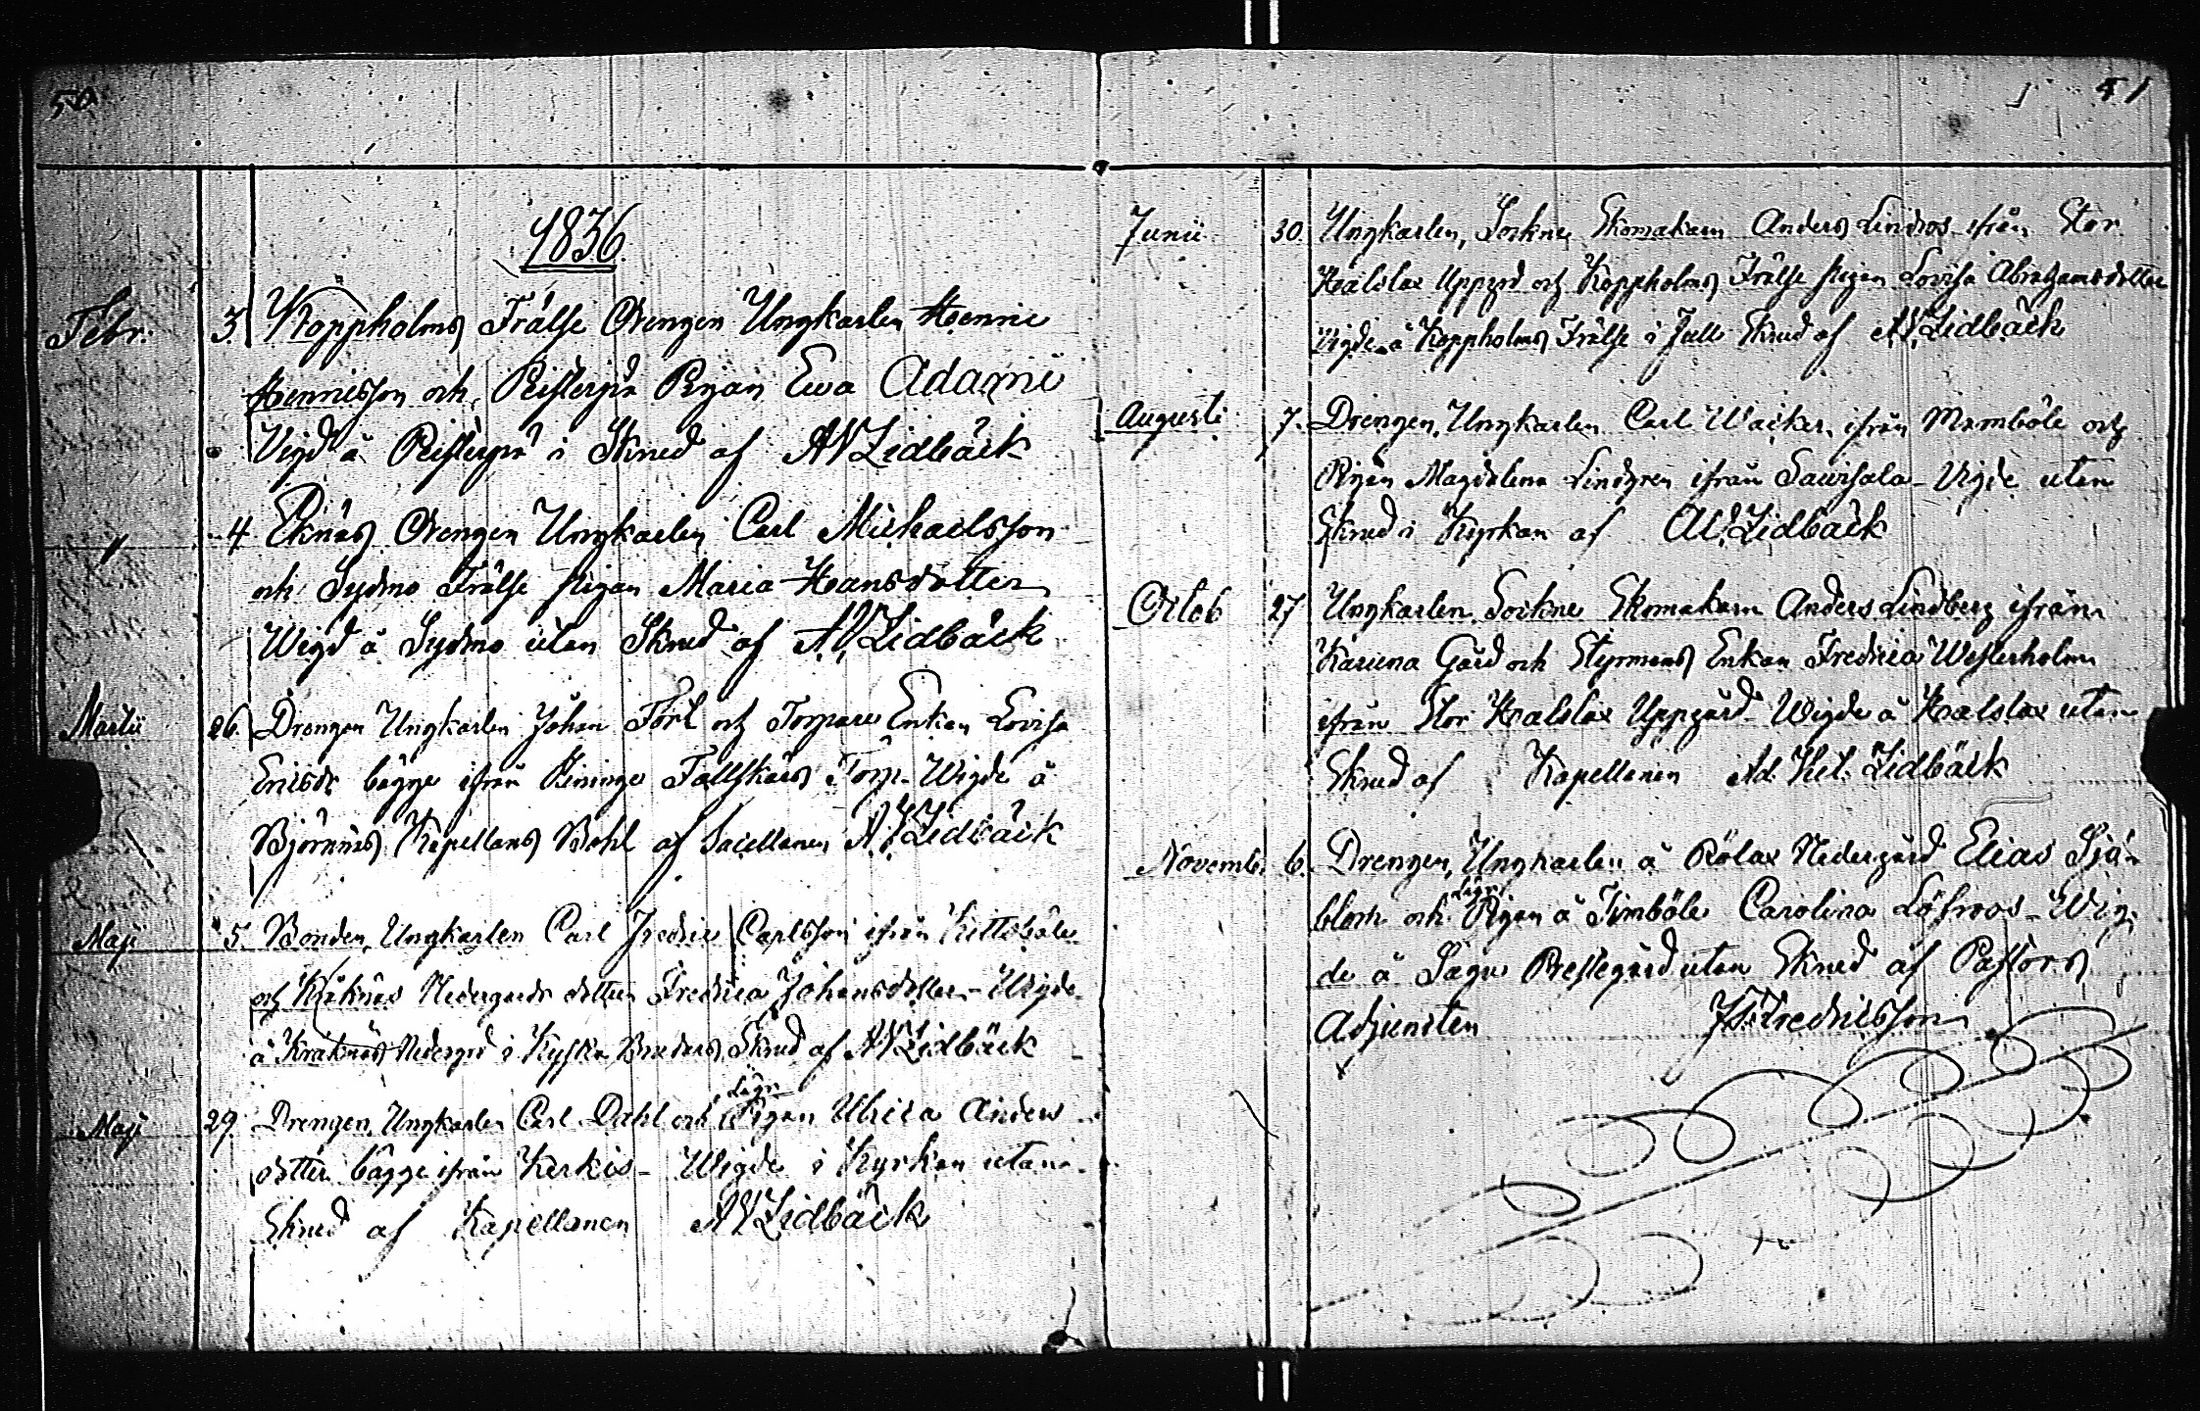 50
1836.
Febr. 3. Koppholms Frälse Drengen Ungkarlen Henric
Hennicsson och Pigan Ewa Adami
Vigd å i Skrud af AVLidbäck
" 4 Eknäs Drengen Ungkarlen Carl Michaelsson
och Sydmo Frälse pigan Maria Hansdotter
Wigd å Sydmo utan Skrud af A.V.Lidbäck
Martii 26 Drengen Ungkarlen Johan och Torpare Enkan Lovisa
Ericsdr bägge ifrån Torp. Wigde å
Björnnäs Kapellans Bohl af Sacellanen A.V.Lidbäck
Maji 5. Bonden, Ungkarlen Carl Fredric Carlsson ifrån Kittobäle
och Kräknäs Nedergårds dotter Fredrica Johansdotter - Wigde
å Kräknäs Nedergrd i Skrud af AVLidbäck
Maji 29. Drengen, Ungkarlen Carl Dahl och Lägn Pigan Ulrica Anders
dotter bägge ifrån Kerkis - Wigde i Kyrkan utan
Skrud af Kapellanen AVLidbäck
51
Junii 30. Ungkarlen, Sockne Skomakarn Anders Lindros ifrån Stor
Halslax Uppgrd och Koppholms Frälse pigan Lovisa Abrahamsdotter
Vigde å Koppholms Frälse i full Skrud af A.V.Lidbäck
Augusti 7. Drengen, Ungkarlen Carl Wacker ifrån Mamböle och
Pigan Magdalena Lindgren ifrån Sauvsala - Vigde utan
Skrud i Kyrkan af AV.Lidbäck
Octob 27 Ungkarlen, Sockne Skomakarn Anders Lindberg ifrån
Karuna Gård och Styrmans Enkan Fredrica Westerholm
ifrån Stor Halslax Uppgård - Wigde å Halslax utan
Skrud af Kapellanen Ad. Vil. Lidbäck
Novemb. 6. Drengen, Ungkarlen å Rölax Nedergård Elias Sjö
blom och Lägn Pigan å Timböle Carolina Löfroos - Wig
de å Sagu Prestegård utan Skrud af Pastors
Adjuncten Fredricsson